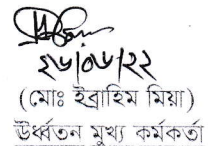 ২৬/০৬/২২
(মোঃ ইব্রাহিম মিয়া)
ঊর্ধ্বতন মুখ্য কর্মকর্তা